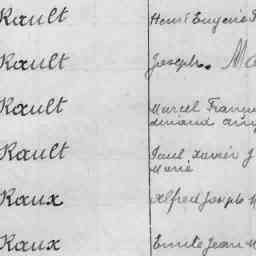 Rault Henri Eugène
Rault Joseph. Ma
Rault Marcel
Rault Paul Xavier J
Marie
Raux Alfred Joseph
Raux Emile Jean